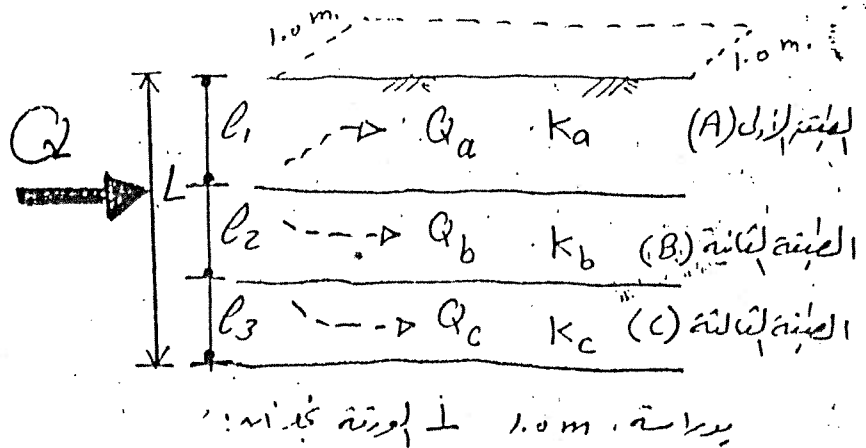 1.0 m.
1.0 m.
Q
L
l1 Qa Ka الطبقة الأولى (A)
l2 Qb Kb الطبقة الثانية (B)
l3 Qc Kc الطبقة الثالثة (C)
بدراسة 1.0 m.